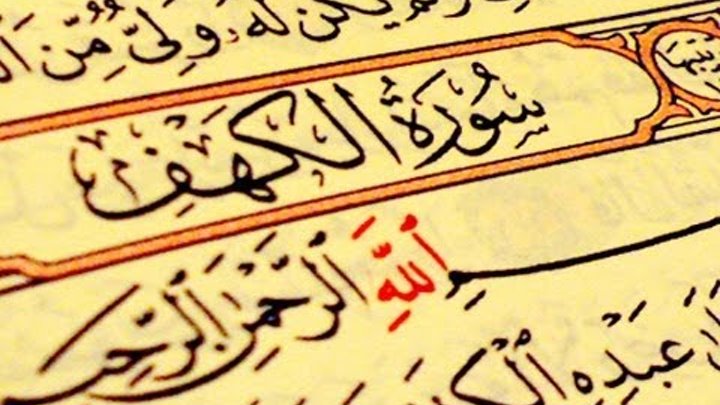 يَكُن لَّهُۥ وَلِىٌّ مِّنَ
سُورَةُ الكَهْفِ
بِسْمِ ٱللَّهِ ٱلرَّحْمَٰنِ ٱلرَّحِ
عَبْدِهِ ٱلْكِ